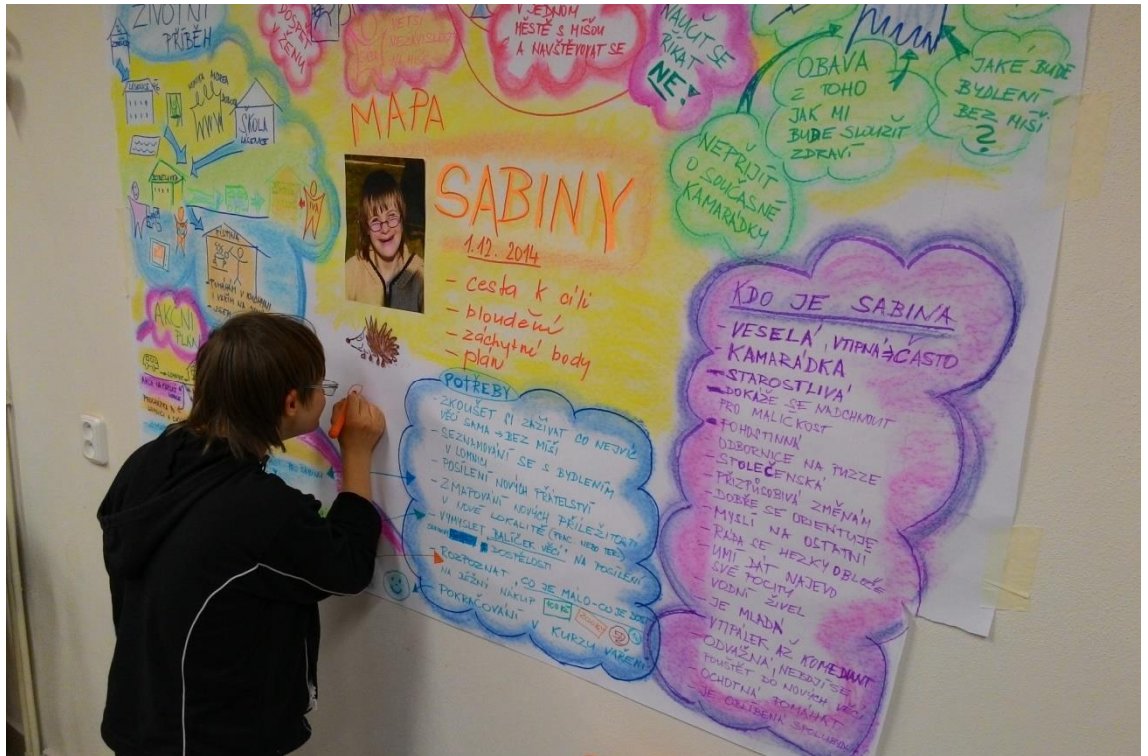 ŽIVOTNÍ
PŘÍBĚH
DOSPĚT
V ŽENU
VĚTŠÍ
V JEDNOM
MĚSTĚ S MÍŠOU
A NAVŠTĚVOVAT SE
NAUČIT SE
ŘÍKAT
NE!
OBAVA
Z TOHO
JAK MI
BUDE SLOUŽIT
ZDRAVÍ
JAKÉ BUDE
BYDLENÍ
BEZ MÍŠI
?
NEPŘIJÍT
O SOUČASNÉ
KAMARÁDKY
ŠKOLA
MAPA
SABINY
1.12. 2014
- cesta k cíli
- bloudění
- záchytné body
- plán
AKČNÍ
PLÁN
POTŘEBY
- ZKOUŠET SI ZAŽÍVAT CO NEJVÍC
VĚCÍ SAMA → BEZ MÍŠI
- SEZNAMOVÁNÍ SE S BYDLENÍM
V LOMNICI
- POSÍLENÍ NOVÝCH PŘÁTELSTVÍ
- ZMAPOVÁNÍ NOVÝCH PŘÍLEŽITOSTÍ
V NOVÉ LOKALITĚ (PRAC. NEBO TER.)
- VYMYSLET „BALÍČEK VĚCÍ" NA POSÍLENÍ
DOSPĚLOSTI
- ROZPOZNAT, CO JE MÁLO-CO JE DOST
NA BĚŽNÍ NÁKUP
POKRAČOVÁNÍ V KURZU VAŘENÍ
KDO JE SABINA
- VESELÁ, VTIPNÁ → ČASTO
- KAMARÁDKA
- STAROSTLIVÁ
- DOKÁŽE SE NADCHNOUT
PRO MALIČKOST
- POHOSTINNÁ
ODBORNICE NA PUZZE
- SPOLEČENSKÁ
- PŘIZPŮSOBIVÁ ZMĚNÁM
- DOBŘE SE ORIENTUJE
- MYSLÍ NA OSTATNÍ
- RÁDA SE HEZKY OBLÉKÁ
- UMÍ DÁT NAJEVO
SVÉ POCITY
- VODNÍ ŽIVEL
- JE MLADÁ
- VTIPÁLEK AŽ KOMEDIANT
- ODVÁŽNÁ, NEBOJÍ SE
POUŠTĚT DO NOVÝCH VĚCÍ
- OCHOTNÁ POMÁHAT
- JE OBLÍBENÁ